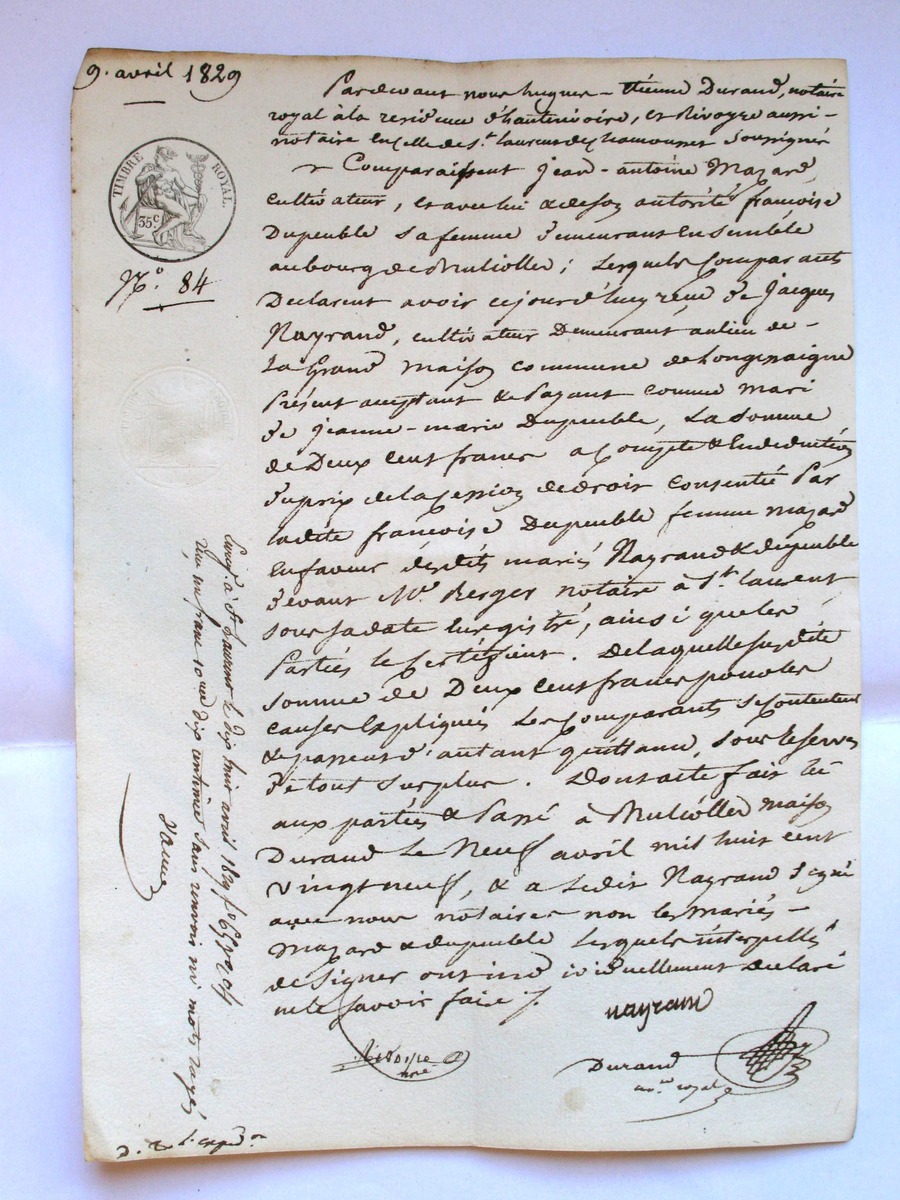 9. avril 1829
TIMBRE ROYAL.
35c
N.o 84
Pardevant nous hugues-étienne Durand, notaire
royal à la residence d'hauterivoire, et Rivoyre aussi
notaire en celle de st. laurent de chamousset soussignés
Comparaissent jean-antoine Mazard
cultivateur, et avec lui & de son autorité françoise
Dupeuble sa femme demeurant ensemble
au bourg de Muliolles; lesquels comparants
Declarent avoir cejourd'huy reçu de jacques
Nayrand, cultivateur Demeurant au lieu de
la Grand maison commune de Longessaigne
Présent acceptant & Payant comme mari
de jeanne-marie Dupeuble, la somme
de Deux cent francs a compte & en deduction
du prix de la cession de droit consentie Par
ladite françoise Dupeuble femme mazard
en faveur desdits mariés Nayrand & dupeuble
devant Me. Berger notaire à St. laurent
sous sa date enregistré, ainsi que les
Parties le certifient. De laquelle susdite
somme de Deux cent francs pour les
causes expliquées les comparants se contentent
& passent d'autant quittance, sous reserves
de tout surplus. Dont acte fait lû
aux parties & Passé à Muliolles maison
Durand le Neuf avril mil huit cent
vingt neuf, & a ledit Nayrand signé
avec nous notaires non les mariés
Mazard & dupeuble lesquels interpellés
de signer ont individuellement declaré
ne le savoir faire ./.
nayrand
Rivoire
nore
Durand
nore royal
Enreg. à St Laurent le dix huit avril 1829 fo 65
reçu un franc 10me dix centimes sans renvoi ni mots rayés
D. & l. expedon